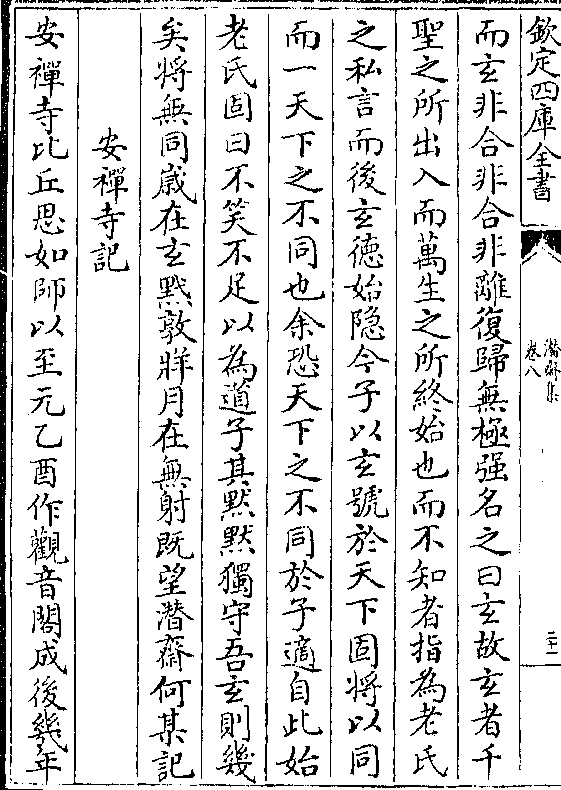 欽定四庫全書
潛齋集
卷八
二十二
而玄非合非合非離復歸無極强名之曰玄故玄者千
聖之所出入而萬生之所終始也而不知者指為老氏
之私言而後玄德始隐今子以玄號於天下固將以同
而一天下之不同也余恐天下之不同於子適自此始
老氏固曰不笑不足以為道子其默默獨守吾玄則幾
矣將無同嵗在玄黙敦牂月在無射既望潜齋何某記
安禪寺記
安禪寺比丘思如師以至元乙酉作觀音閣成後幾年